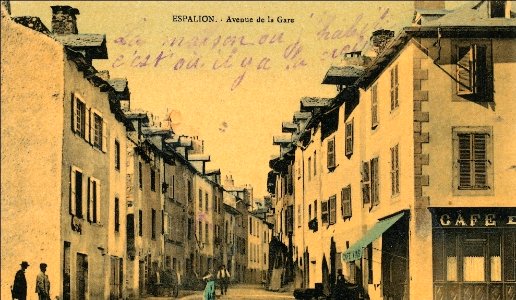 ESPALION. - Avenue de la Gare
La maison ou j'habite
c'est ou il y a la
CAFÉ